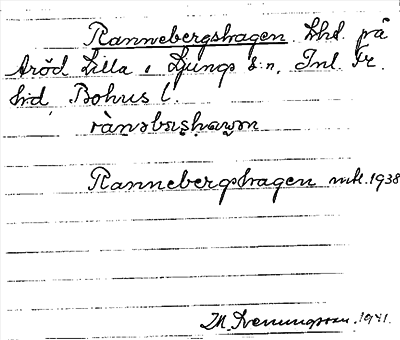 Rannebergshagen Lhd. på
Aröd Lilla i Ljungs s:n, Inl. Fr.
hd, Bohus l.
Rannebergshagen mtl. 1938
M. Svenungsson. 1941.